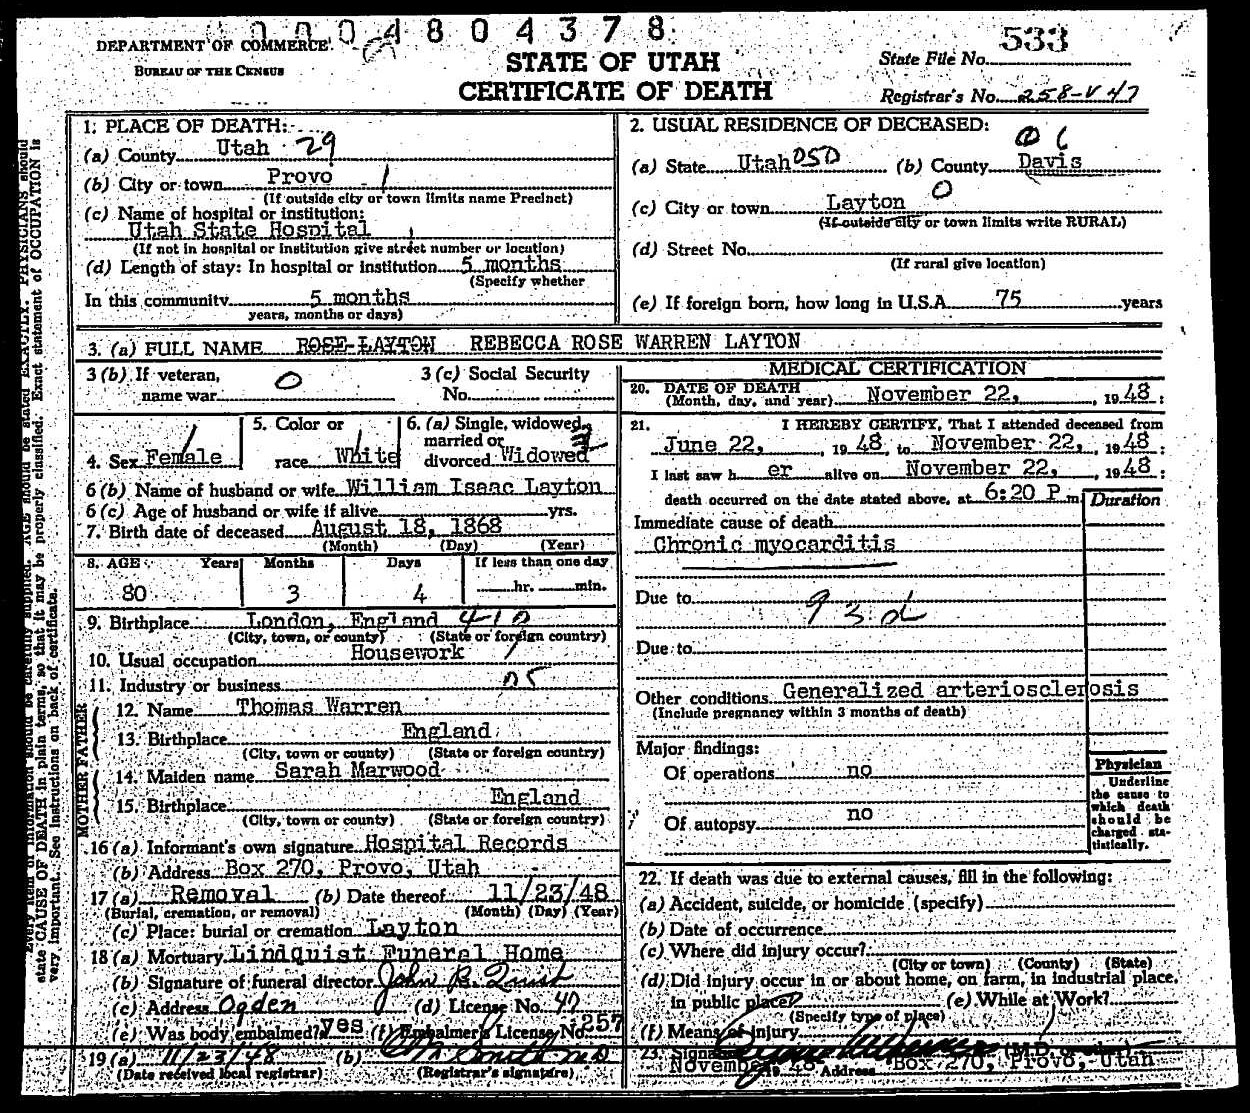 0004804378
DEPARTMENT OF COMMERCE
BUREAU OF THE CENSUS
STATE OF UTAH
CERTIFICATE OF DEATH
State File No. 533
Registrar's No. 258-V 47
1. PLACE OF DEATH:
(a) County Utah 29
(b) City or town Provo 1
(If outside city or town limits name Precinct)
(c) Name of hospital or institution:
Utah State Hospital
(If not in hospital or institution give street number or location)
(d) Length of stay: In hospital or institution 5 months
(Specify whether
In this community 5 months
years, months or days)
2. USUAL RESIDENCE OF DECEASED:
06
(a) State Utah 050 (b) County Davis
(c) City or town Layton 0
(If outside city or town limits write RURAL)
(d) Street No.
(If rural give location)
(e) If foreign born, how long in U.S.A. 75 years
3. (a) FULL NAME ROSE LAYTON REBECCA ROSE WARREN LAYTON
3 (b) If veteran, name war 0
3 (c) Social Security No.
4. Sex Female
5. Color or race White
6. (a) Single, widowed, married or divorced Widowed
6 (b) Name of husband or wife William Isaac Layton
6 (c) Age of husband or wife if alive yrs.
7. Birth date of deceased August 18, 1868
(Month) (Day) (Year)
8. AGE Years Months Days If less than one day
80 3 4 hr. min.
9. Birthplace London, England 410
(City, town, or county) (State or foreign country)
10. Usual occupation Housework
11. Industry or business 05
FATHER
12. Name Thomas Warren
13. Birthplace England
(City, town or county) (State or foreign country)
MOTHER
14. Maiden name Sarah Marwood
15. Birthplace England
(City, town or county) (State or foreign country)
16 (a) Informant's own signature Hospital Records
(b) Address Box 270, Provo, Utah
17 (a) Removal (b) Date thereof 11/23/48
(Burial, cremation, or removal) (Month) (Day) (Year)
(c) Place: burial or cremation Layton
18 (a) Mortuary Lindquist Funeral Home
(b) Signature of funeral director John B.
(c) Address Ogden (d) License No. 47
(e) Was body embalmed? yes (f) Embalmer's License No. 257
19 (a) 11/23/48 (b) Smith M D
(Date received local registrar) (Registrar's signature)
MEDICAL CERTIFICATION
20. DATE OF DEATH
(Month, day, and year) November 22, 1948:
21. I HEREBY CERTIFY, That I attended deceased from
June 22, 1948 to November 22, 1948:
I last saw her alive on November 22, 1948:
death occurred on the date stated above, at 6:20 P.m.
Duration
Immediate cause of death
Chronic myocarditis
Due to 93d
Due to
Other conditions Generalized arteriosclerosis
(Include pregnancy within 3 months of death)
Major findings:
Of operations no
Of autopsy no
Physician
Underline
the cause to
which death
should be
charged sta-
tistically.
22. If death was due to external causes, fill in the following:
(a) Accident, suicide, or homicide (specify)
(b) Date of occurrence
(c) Where did injury occur?
(City or town) (County) (State)
(d) Did injury occur in or about home, on farm, in industrial place,
in public place? (e) While at Work?
(Specify type of place)
(f) Means of injury
23. Signature
November 48 Address Box 270, Provo, Utah
state CAUSE OF DEATH in plain terms, so that it may be properly classified. Exact statement of OCCUPATION is
very important. See instructions on back of certificate.